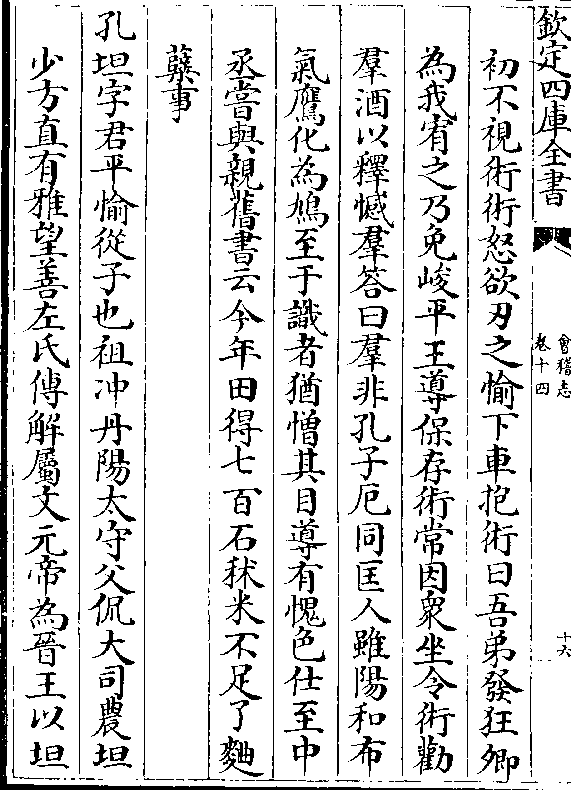 欽定四庫全書
會稽志
卷十四
十六
初不視術術怒欲刃之愉下車抱術曰吾弟發狂卿
為我宥之乃免峻平王導保存術常因衆坐令術勸
羣酒以釋憾羣答曰羣非孔子厄同匡人雖陽和布
氣鷹化為鳩至于識者猶憎其目導有愧色仕至中
丞嘗與親舊書云今年田得七百石秫米不足了麴
蘖事
孔坦字君平愉從子也祖沖丹陽太守父侃大司農坦
少方直有雅望善左氏傳解屬文元帝為晉王以坦